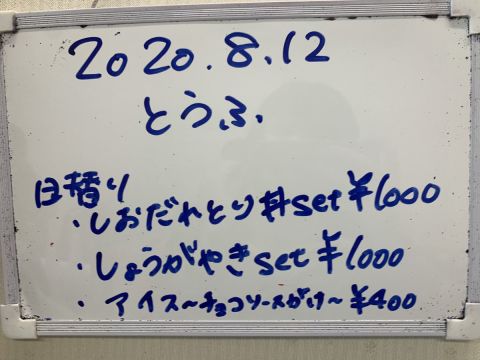 2020.8.12
とうふ
日替り
・しおだれとり丼set¥1000
・しょうがやきset¥1000
・アイス～チョコソースがけ～¥400